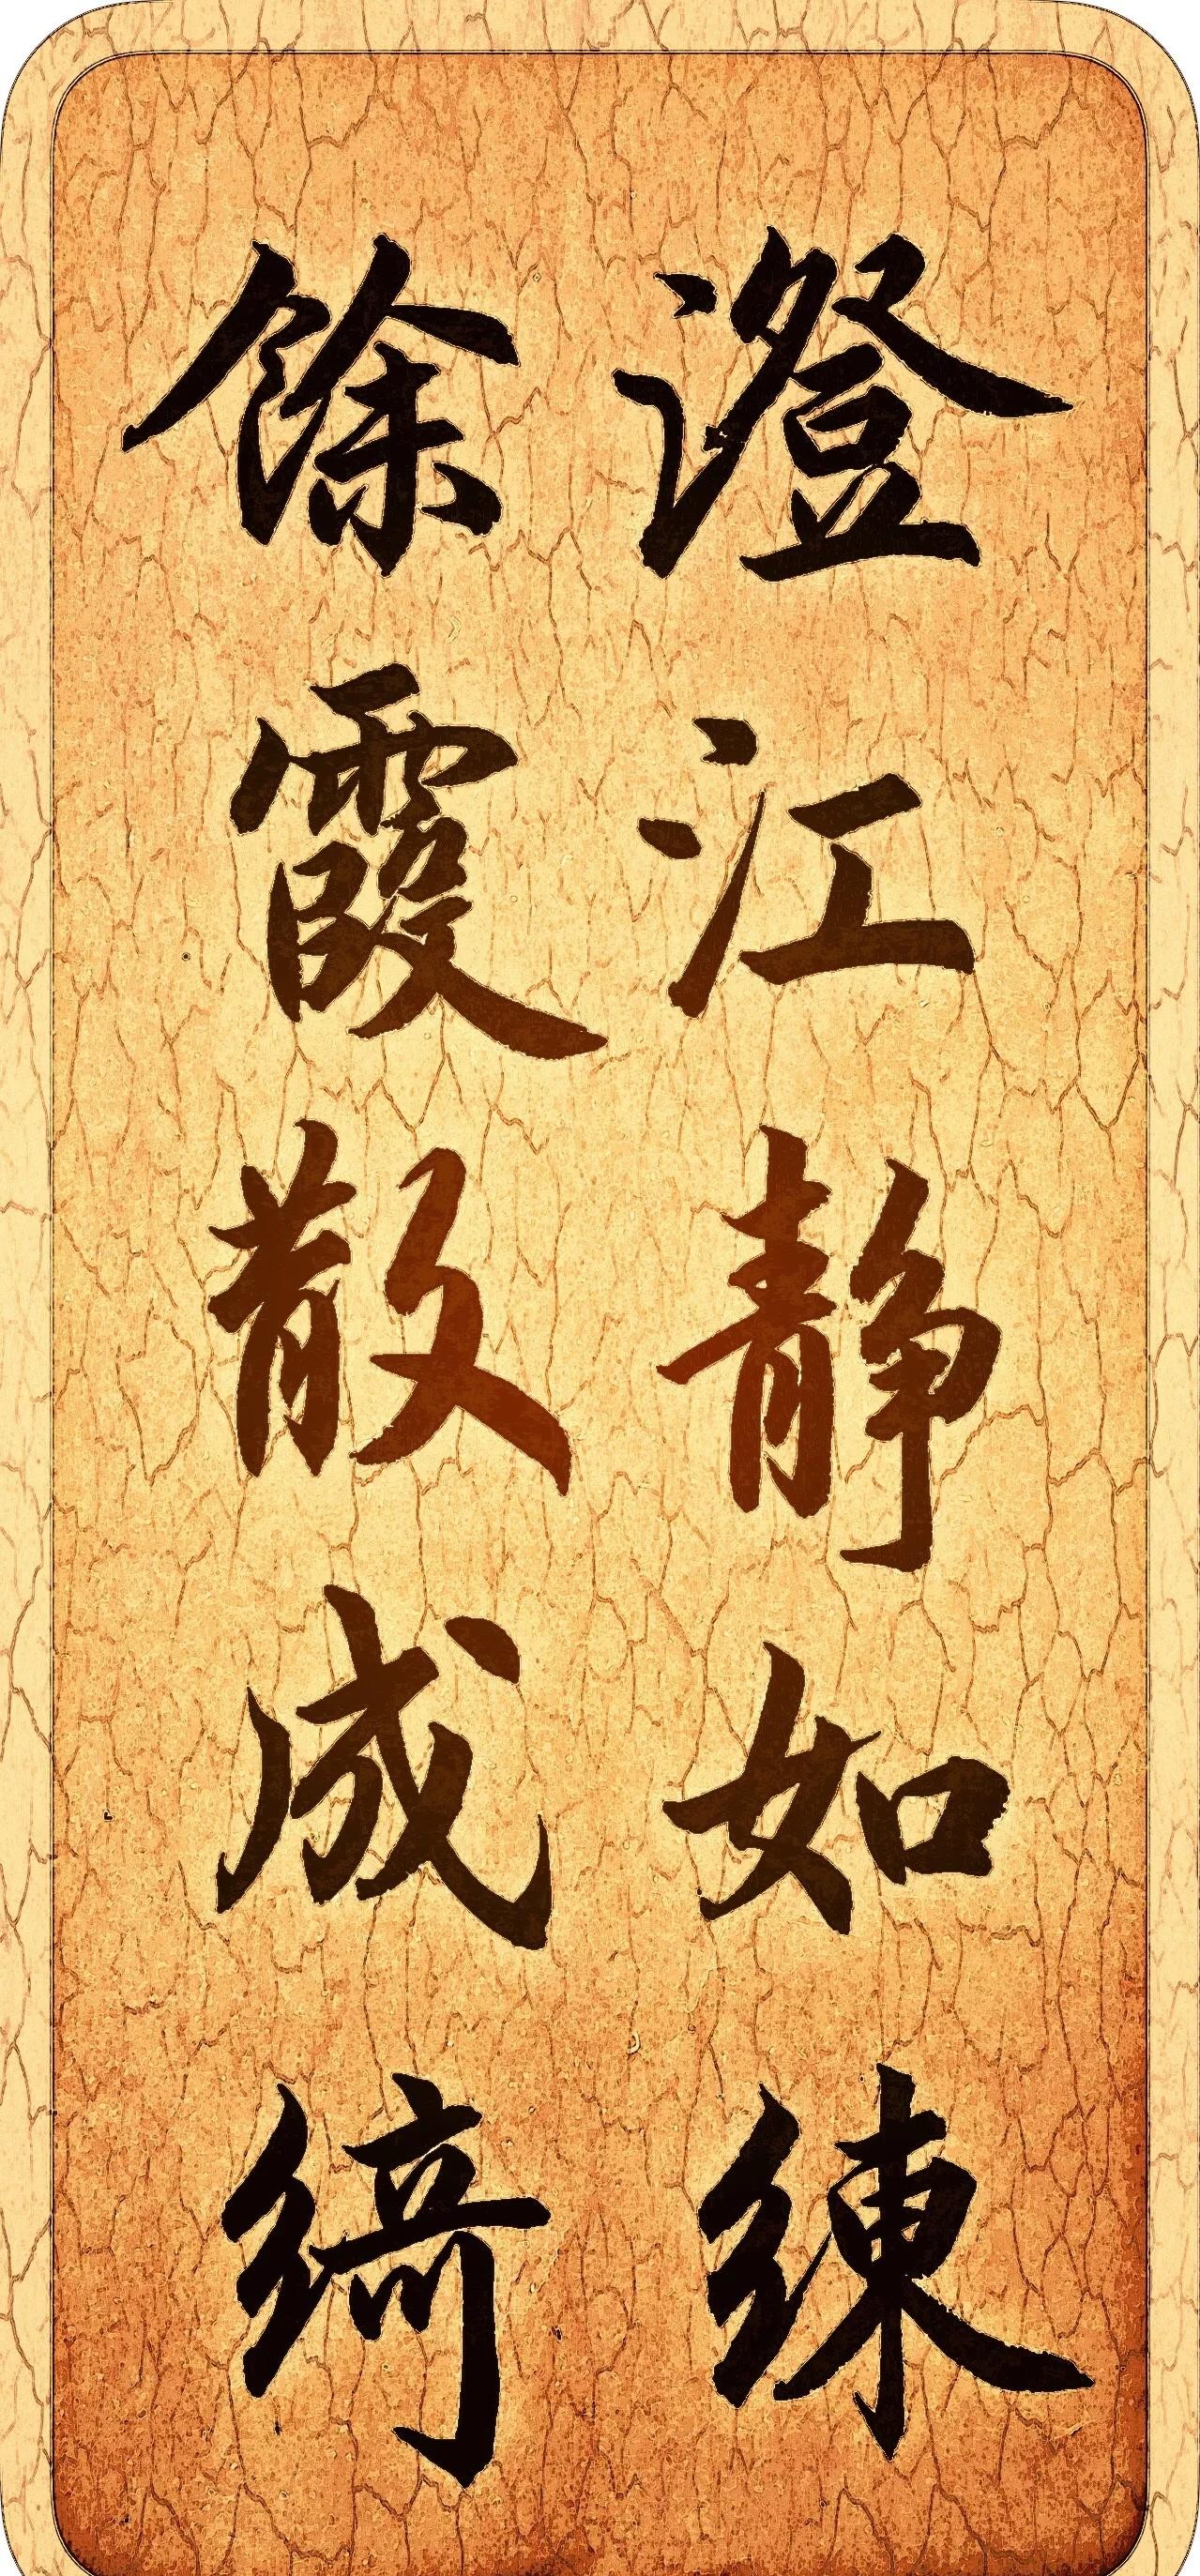 澄江静如練
餘霞散成綺